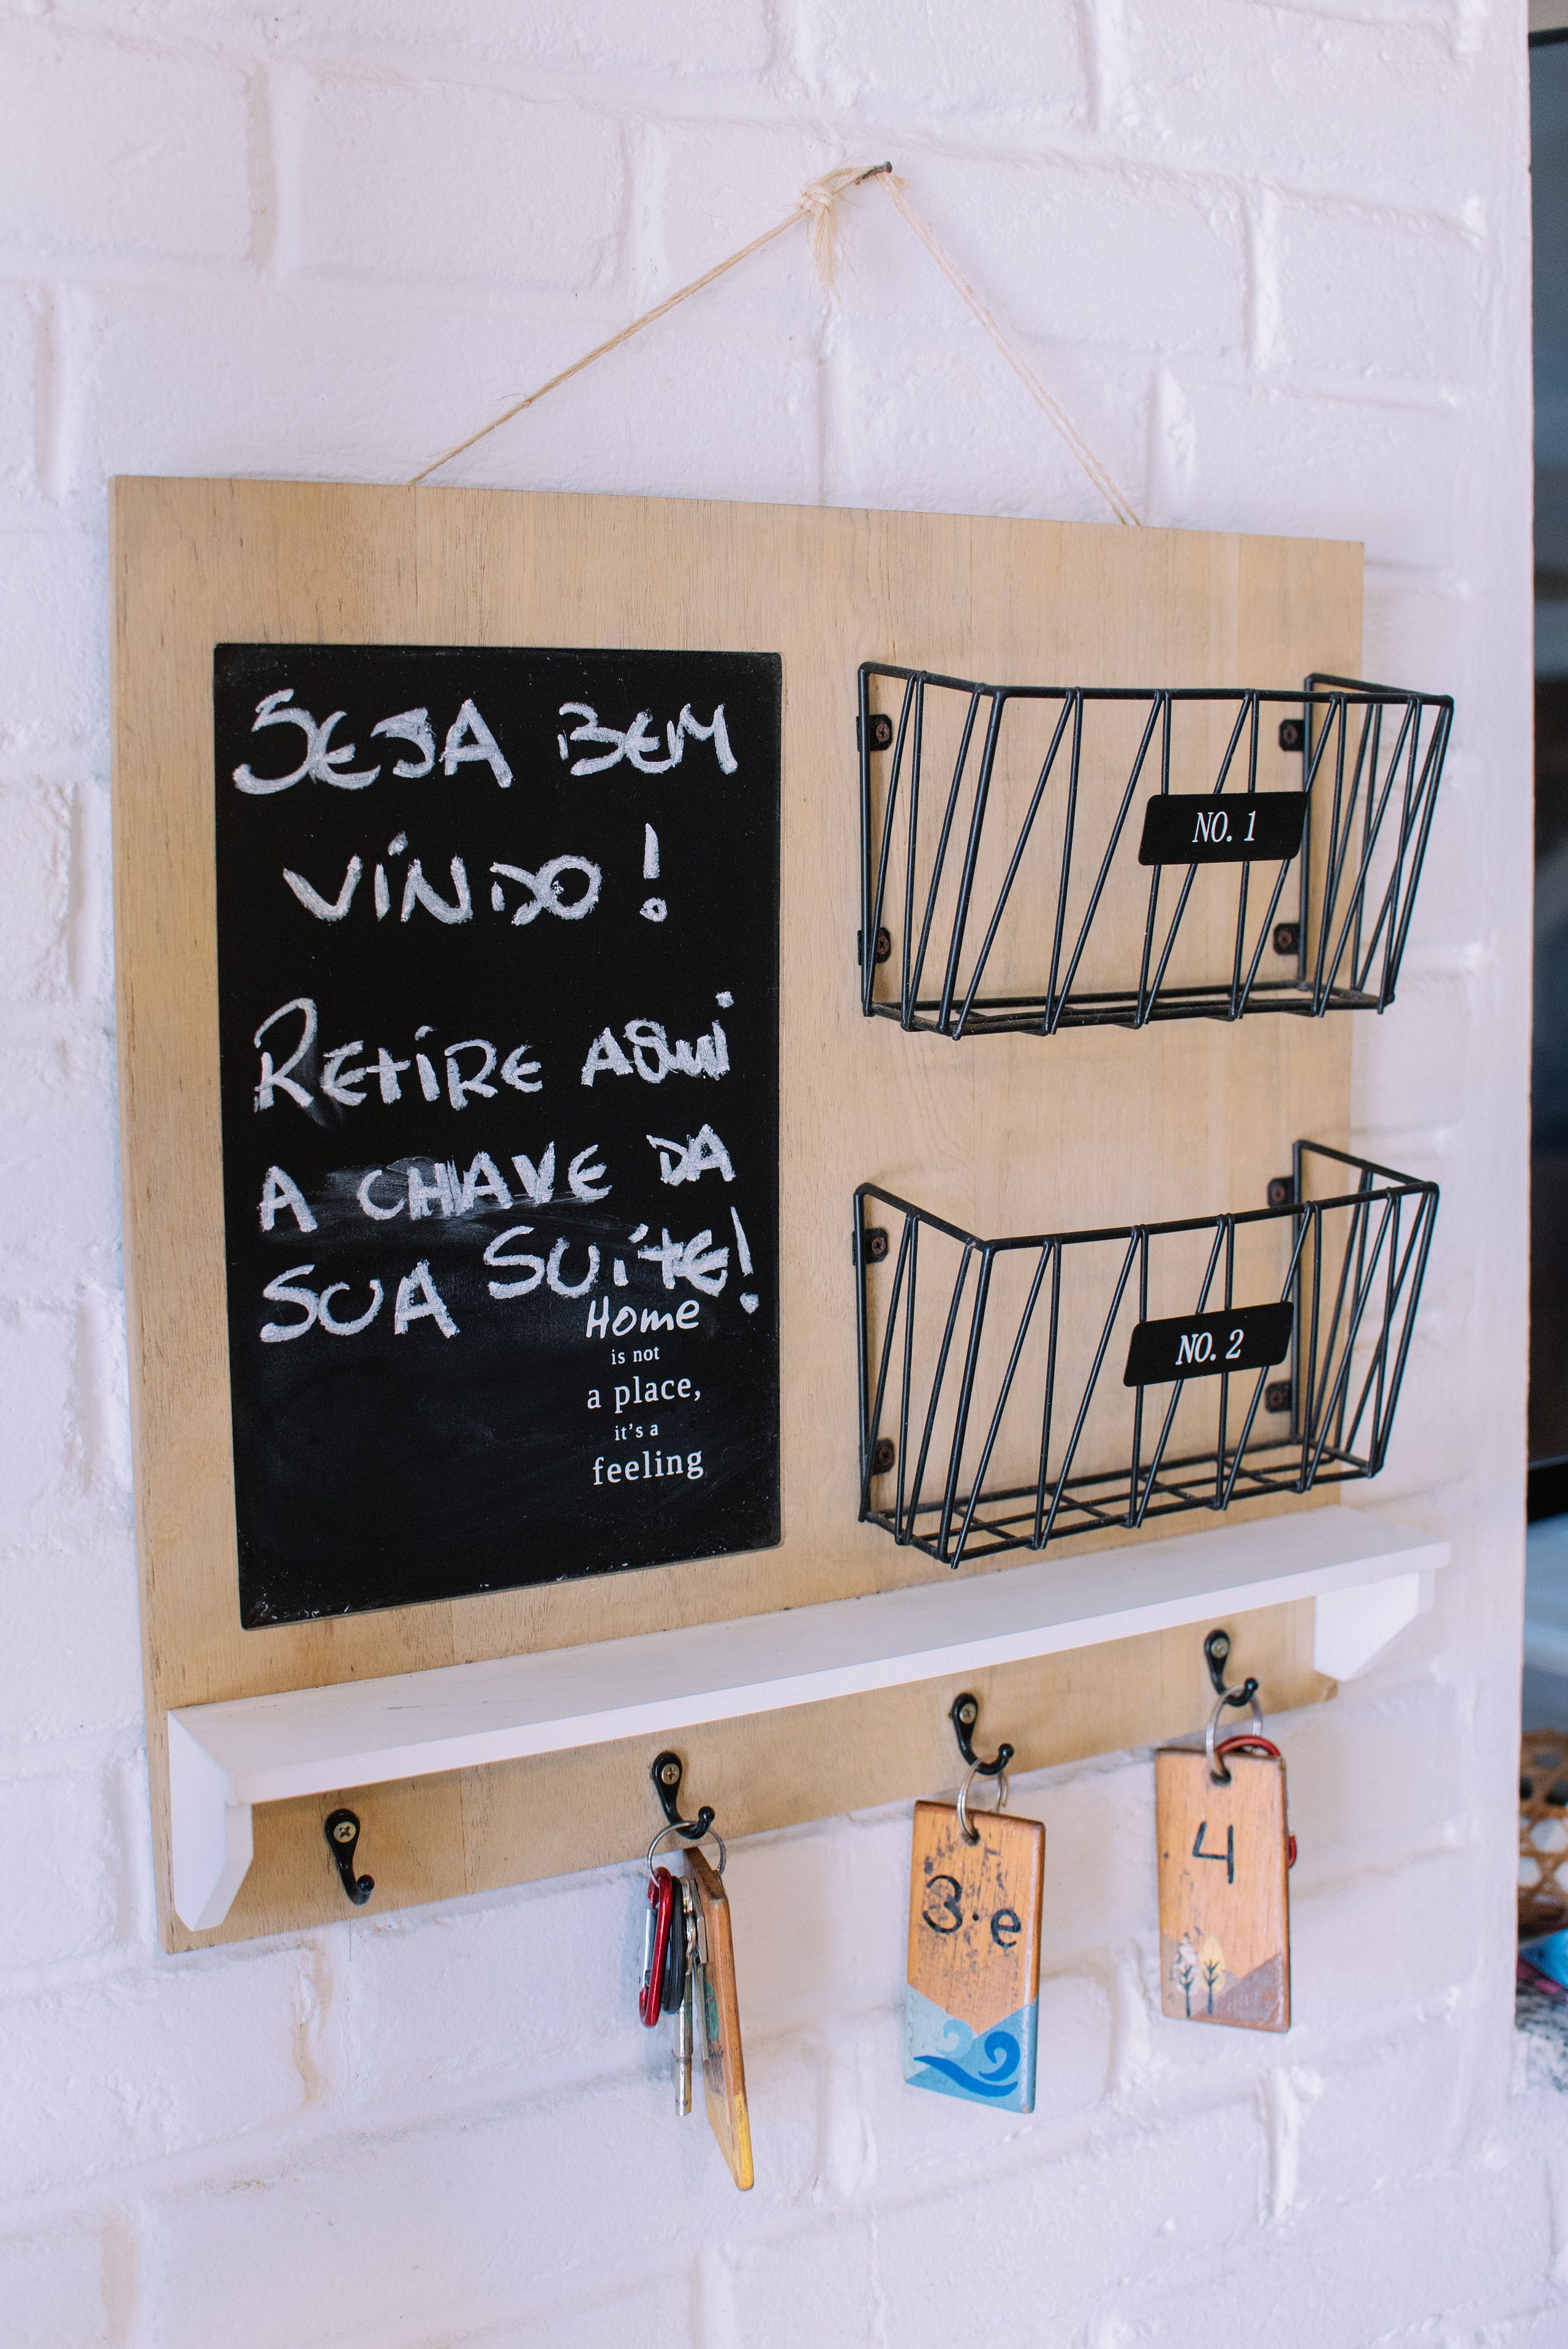 SEJA BEM
VINDO!
RETIRE AQUI
A CHAVE DA
SUA SUíTE!
Home
is not
a place,
it's a
feeling
NO. 1
NO. 2
3.e
4